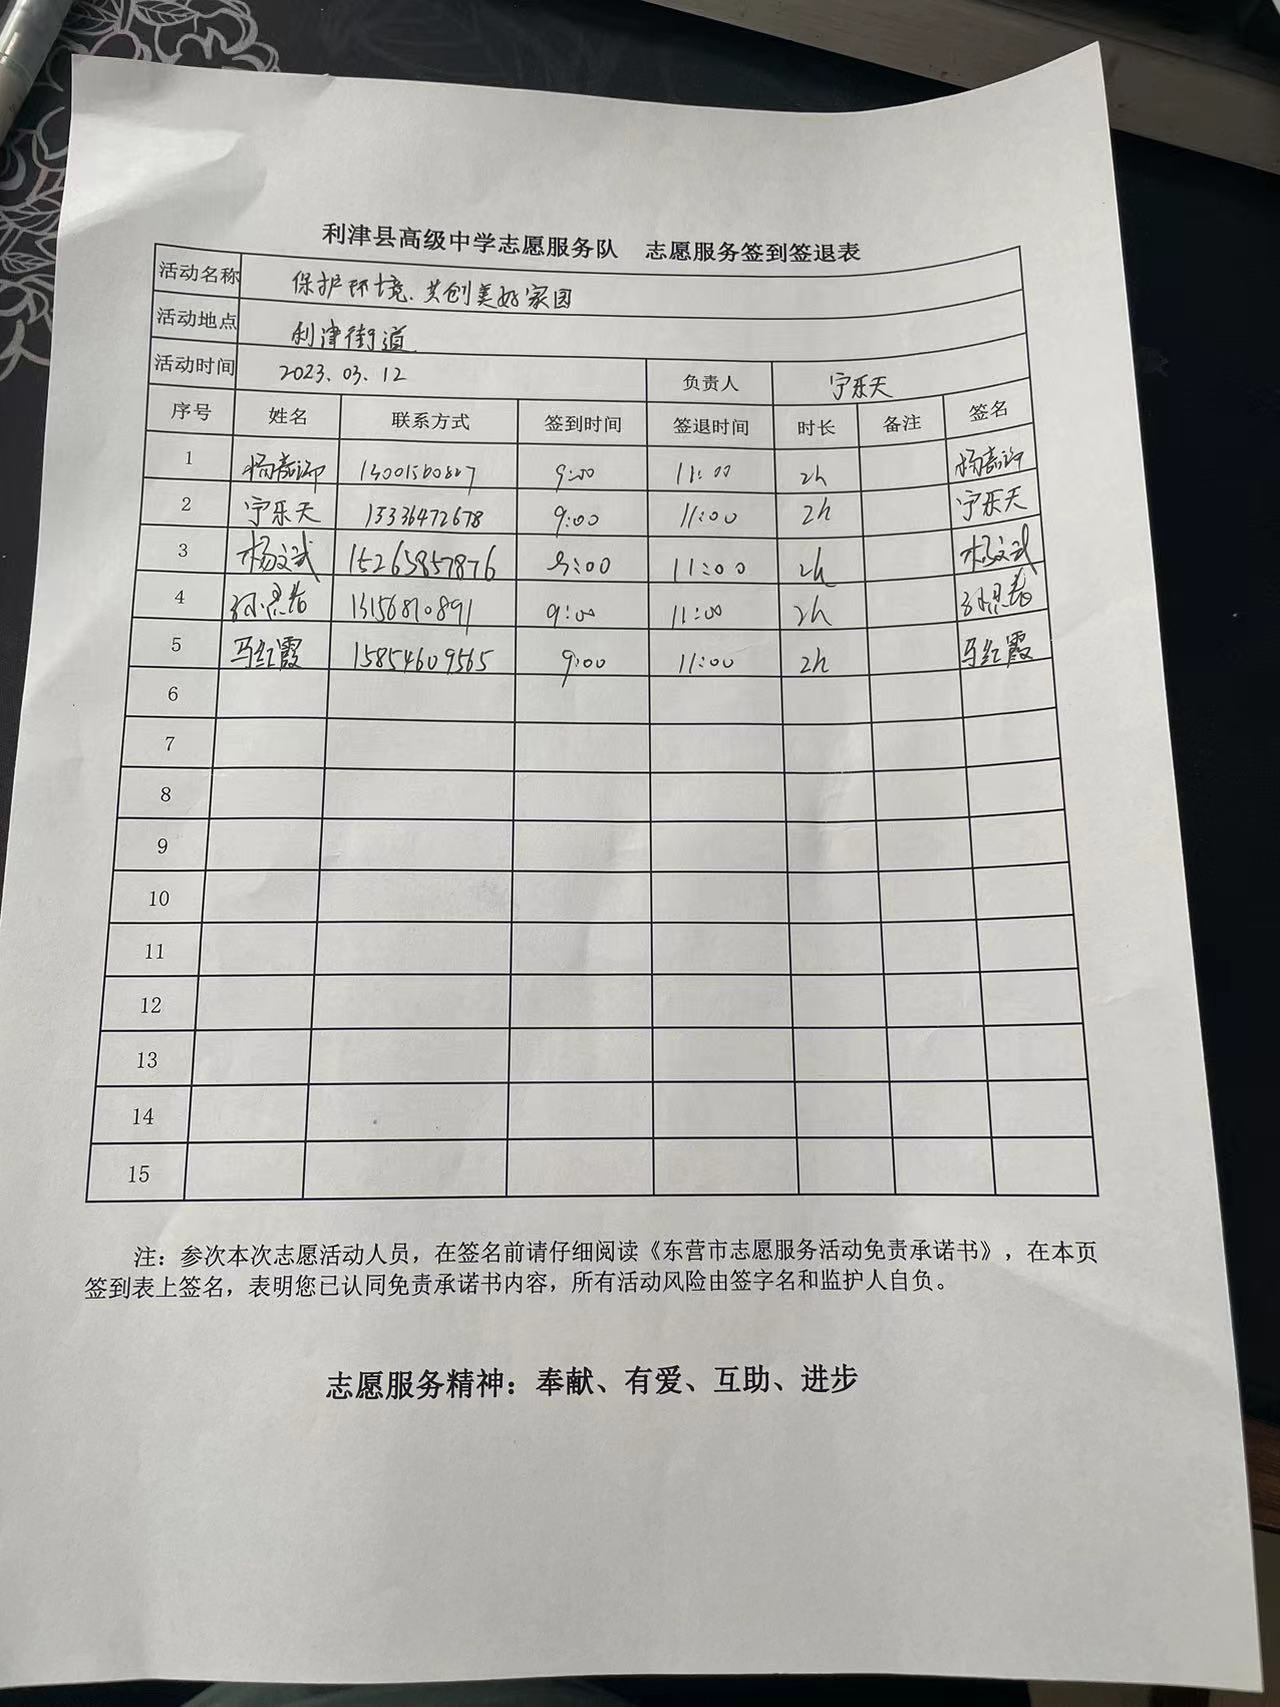 利津县高级中学志愿服务队 志愿服务签到签退表
活动名称 保护环境.共创美好家园
活动地点 利津街道
活动时间 2023.03.12 负责人 宁乐天
序号 姓名 联系方式 签到时间 签退时间 时长 备注 签名
1 9:00 11:00 2h
2 宁乐天 13336472678 9:00 11:00 2h 宁乐天
3 杨文武 15265857876 9:00 11:00 2h 杨文武
4 13156810891 9:00 11:00 2h
5 马红霞 15854609565 9:00 11:00 2h 马红霞
6
7
8
9
10
11
12
13
14
15
注：参次本次志愿活动人员，在签名前请仔细阅读《东营市志愿服务活动免责承诺书》，在本页
签到表上签名，表明您已认同免责承诺书内容，所有活动风险由签字名和监护人自负。
志愿服务精神：奉献、有爱、互助、进步